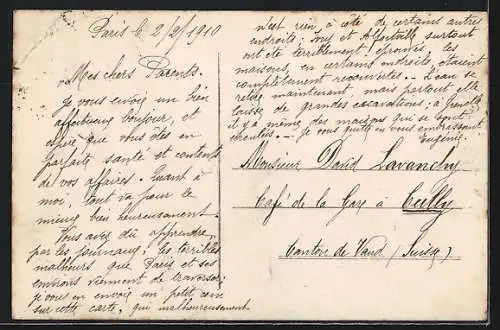 Paris le 2/2/1910
Mes chers Parents.
Je vous envoie un bien
affectueux bonjour, et
espère que vous êtes en
parfaite santé et contents
de vos affaires. Quant à
moi, tout va pour le
mieux bien heureusement.
Vous avez dû apprendre
par les journaux, les terribles
malheurs que Paris et ses
environs viennent de traverser;
je vous en envoie un petit coin
sur cette carte, qui malheureusement
n'est rien à côté de certains autres
endroits: Ivry et Alfortville surtout
ont été terriblement éprouvés, les
maisons, en certains endroits, étaient
complètement recouvertes. - L'eau se
retire maintenant, mais partout elle
laisse de grandes excavations; à Grenelle
il y a même des maisons qui se sont
écroulées. - Je vous quitte en vous embrassant
Eugénie.
Monsieur David Lavanchy
Café de la Gare à Cully
Canton de Vaud (Suisse)